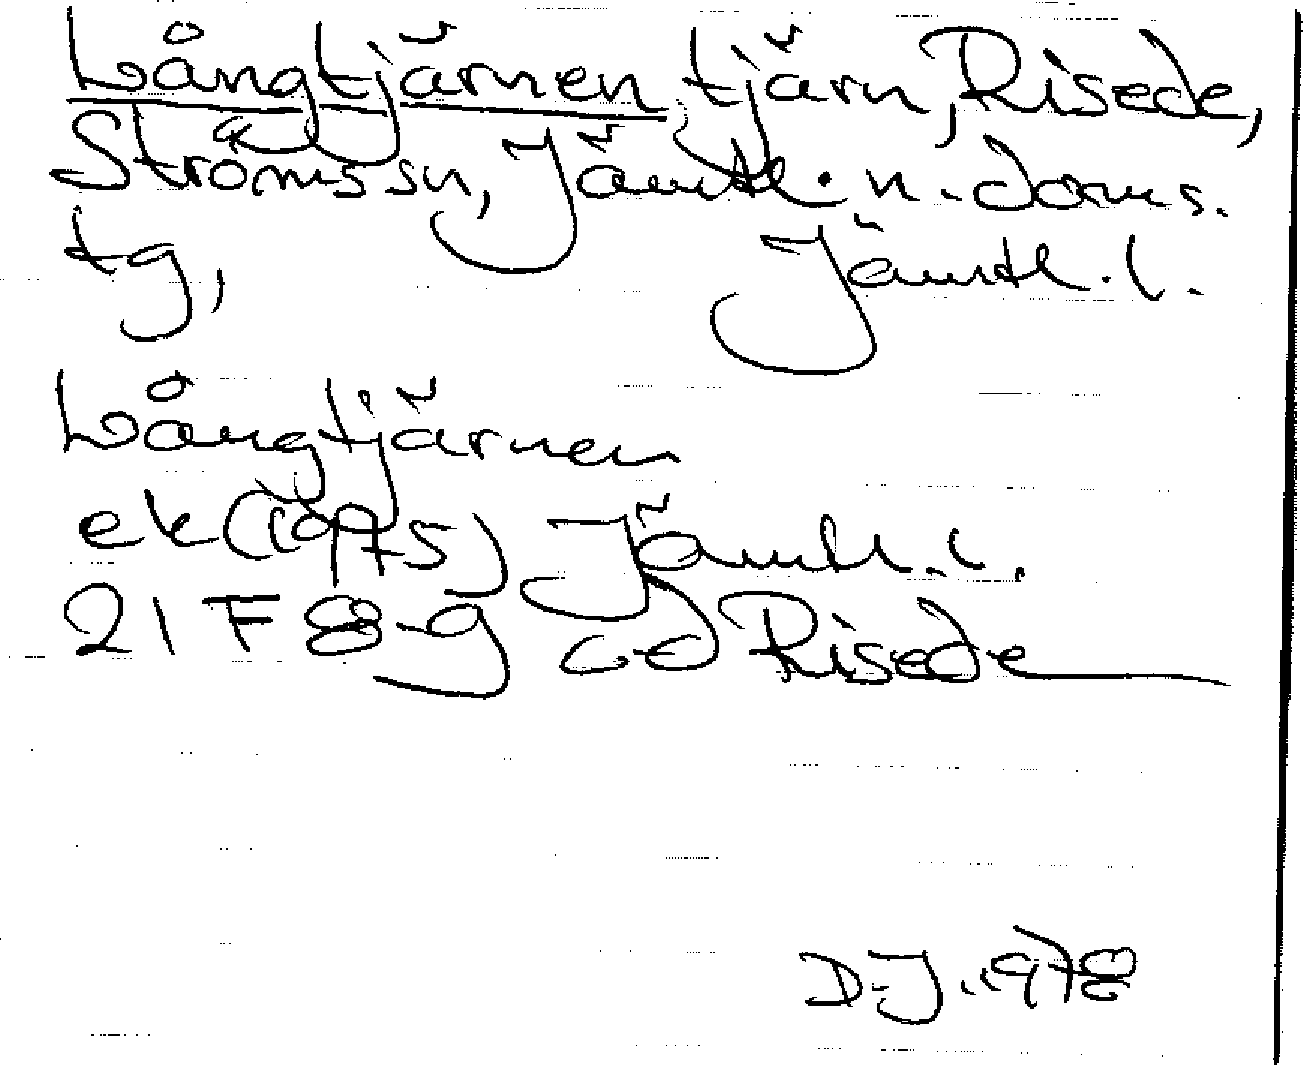 Långtjärnen tjärn, Risede,
Ströms sn, Jämtl. n. doms.
tg, Jämtl. l.
Långtjärnen
ek (1975) Jämtl. l.
21 F 8-9 cd Risede
D.J. 1978